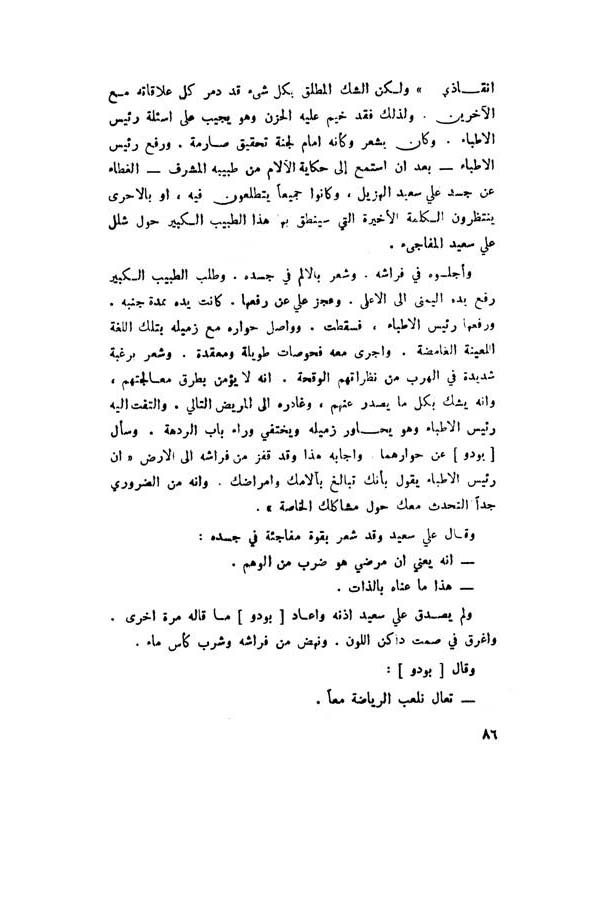 انقـــاذي » ولـكن الشك المطلق بكل شيء قد دمر كل علاقاته مـع
الآخرين . ولذلك فقد خيم عليه الحزن وهو يجيب على اسئلة رئيس
الاطباء . وكان يشعر وكأنه امام لجنة تحقيق صـارمة . ورفع رئيس
الاطباء — بعد ان استمع إلى حكاية الآلام من طبيبه المشرف — الغطاء
عن جسد علي سعيد الهزيل ، وكانوا جميعاً يتطلعون فيه ، او بالاحرى
ينتظرون الـكلمة الأخيرة التي سينطق بها هذا الطبيب الكبير حول شلل
علي سعيد المفاجىء .
وأجلسوه في فراشه . وشعر بالالم في جسده . وطلب الطبيب الـكبير
رفع يده اليمنى الى الاعلى . وعجز علي عن رفعها . كانت يده ممدة جنبه .
ورفعها رئيس الاطباء ، فسقطت . وواصل حواره مع زميله بتلك اللغة
اللعينة الغامضة . واجرى معه فحوصات طويلة ومعقدة . وشعر برغبة
شديدة في الهرب من نظراتهم الوقحة . انه لا يؤمن بطرق معـالجتهم ،
وانه يشك بكل ما يصدر عنهم ، وغادره الى المريض التالي . والتفت اليه
رئيس الاطباء وهو يحـــاور زميله ويختفي وراء باب الردهة . وسأل
[ بودو ] عن حوارهما . واجابه هذا وقد قفز من فراشه الى الارض « ان
رئيس الاطباء يقول بأنك تبالغ بآلامك وامراضك . وانه من الضروري
جداً التحدث معك حول مشاكلك الخاصة » .
وقـال علي سعيد وقد شعر بقوة مفاجئة في جسده :
— انه يعني ان مرضي هو ضرب من الوهم .
— هذا ما عناه بالذات .
ولم يصـدق علي سعيد اذنه واعـاد [ بودو ] مـا قاله مرة اخرى .
واغرق في صمت داكن اللون . ونهض من فراشه وشرب كأس ماء .
وقال [ بودو ] :
— تعال نلعب الرياضة معاً .
٨٦